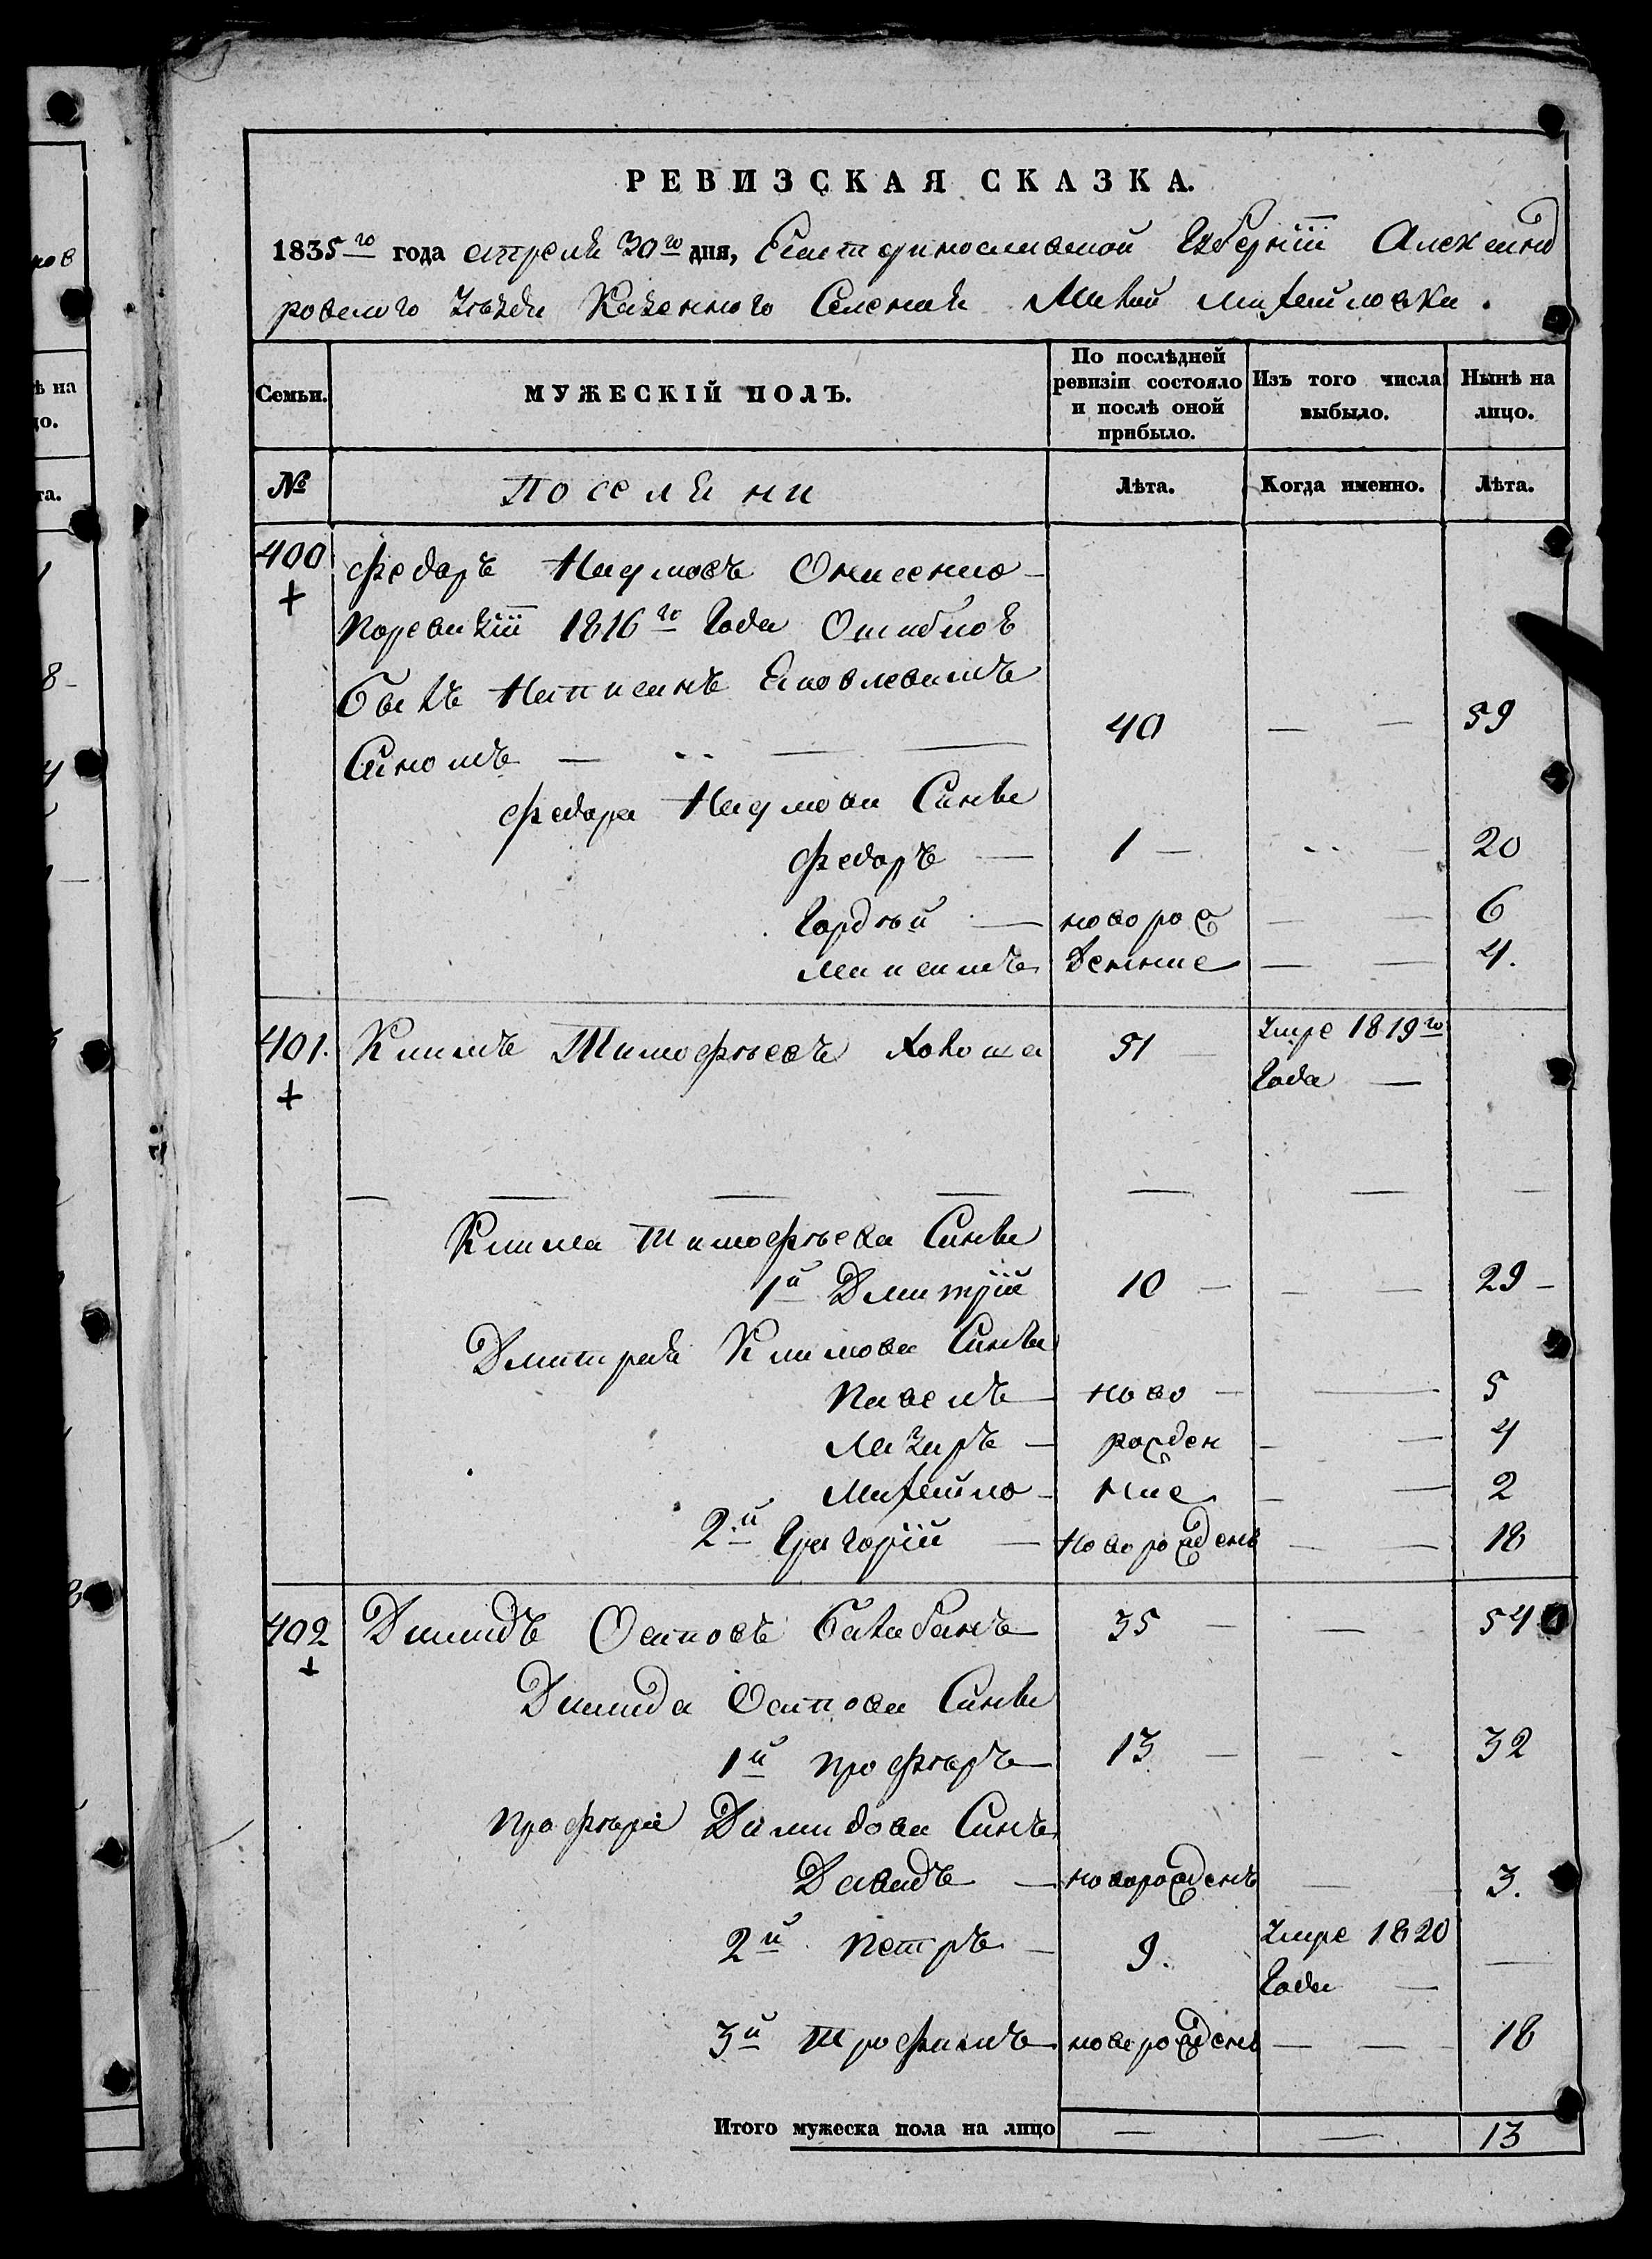 РЕВИЗСКАЯ СКАЗКА.
1835го года апреля 30го дня, Екатеринославской Губерніи Александ
ровского Уѣзда Казенного Селения Малой михайловки.
Семьи.
МУЖЕСКІЙ ПОЛЪ.
По послѣдней ревизіи состояло и послѣ оной прибыло.
Изъ того числа выбыло.
Нынѣ на лицо.
№ Поселяни Лѣта. Когда именно. Лѣта.
400 Федоръ Наумовъ Онисенко
поревизіи 1816го Года Ошибкоѣ
былъ Написанъ Яковлевимъ
Синомъ — 40 — — 59
Федора Наумова Сини
Федоръ — 1 — — 20
Гордѣй — новорож — — 6
Максимъ денние — — 4.
401. Климъ Тимофѣевъ Хохоша 51 Умре 1819го
Года —
Клима Тимофѣева Сини
1й Дмитрій 10 — — 29
Дмитрия Климова Сини
Павелъ — ново — — 5
Лазарь — рожден — — 4
Михайло — ние — — 2
2й Григорій — Новорожденъ — — 18
402 Димидъ Осиповъ Балабанъ 35 — — 54
Димида Осипова Сини
1й Профѣръ 13 — — 32
Профѣра Димидова Синъ
Давидъ — новорожденъ — 3.
2й Петръ — 9. Умре 1820
Года — —
3й Трофимъ новорожденъ — — 18
Итого мужеска пола на лицо — — 13